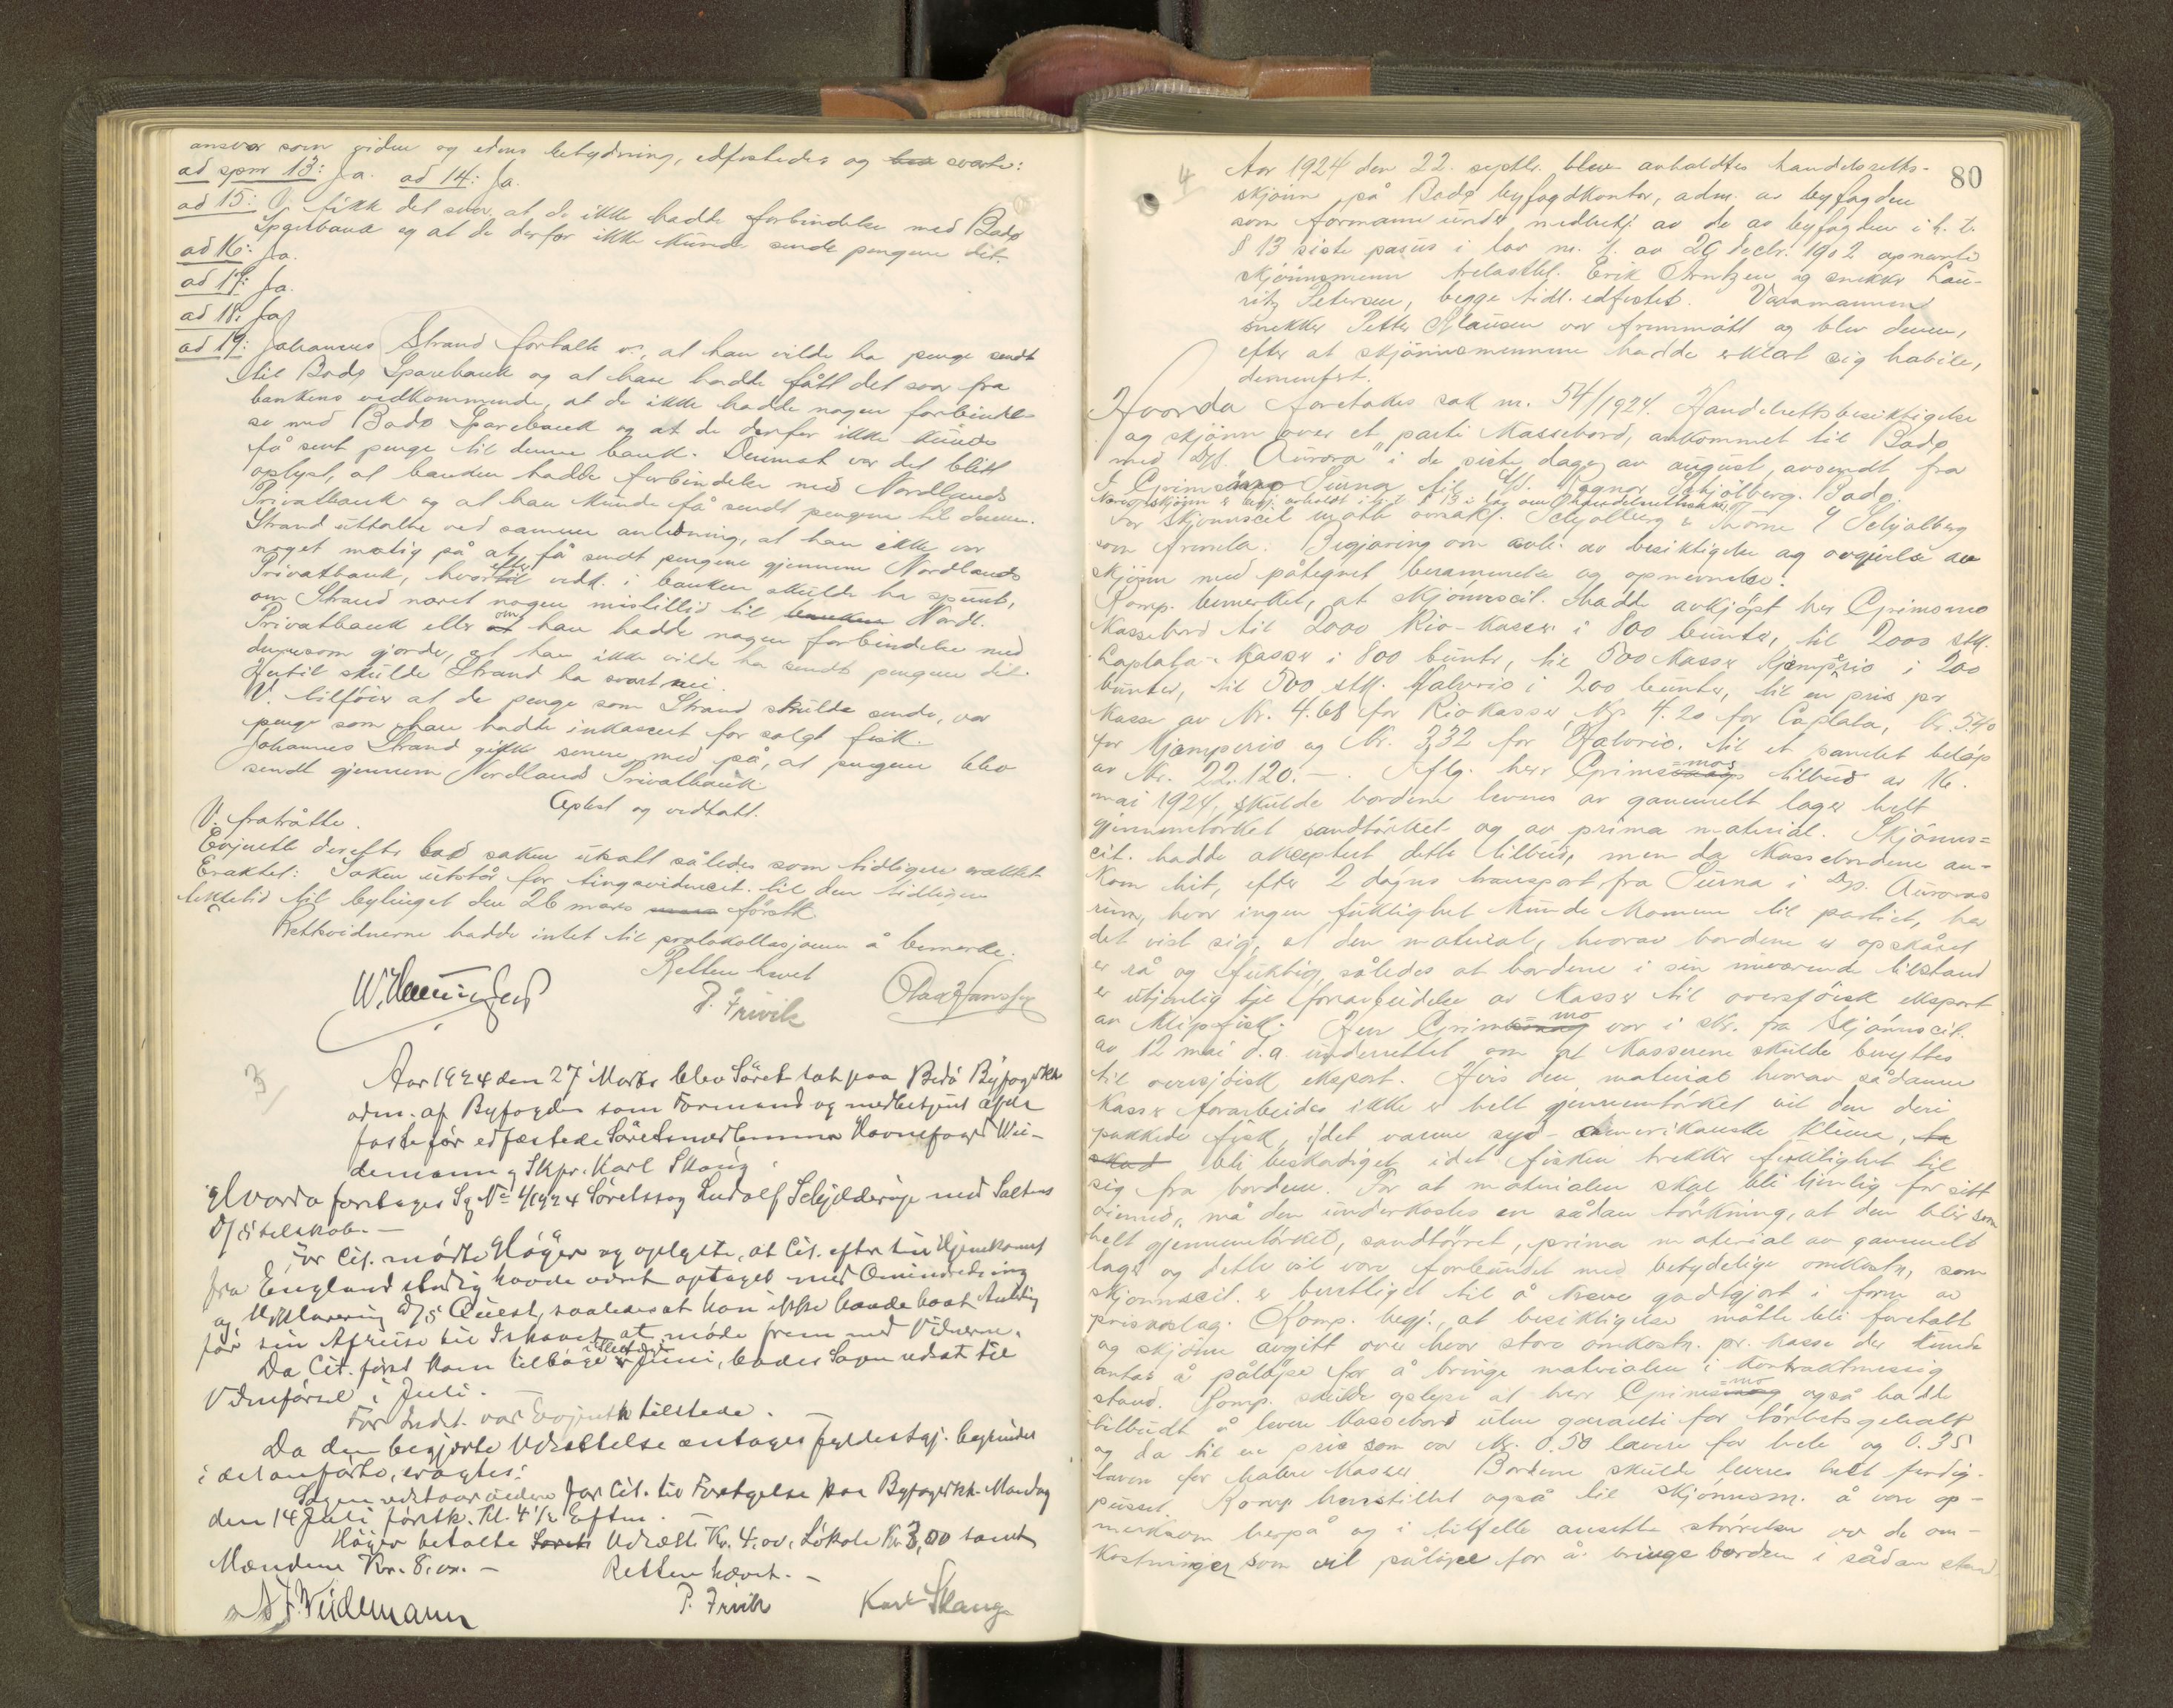 ansvar som vidne og edens betydning, edfæstedes og svarte:
ad spm 13: Ja. ad 14: Ja.
ad 15: V. fikk det svar at de ikke hadde forbindelse med Bodø
Sparebank og at de derfor ikke kunde sende pengene dit.
ad 16: Ja.
ad 17: Ja.
ad 18: Ja,
ad 19: Johannes Strand fortalte v., at han vilde ha penge sendt
til Bodø Sparebank og at han hadde fått det svar fra
bankens vedkommende, at de ikke hadde nogen forbindel-
se med Bodø Sparebank og at de derfor ikke kunde
få sent penge til denne bank. Derimot var det blitt
oplyst, at banken hadde forbindelse med Nordlands
Privatbank og at han kunde få sendt pengene til denne.
Strand uttalte ved samme anledning, at han ikke var
noget mætig på at få sendt pengene gjennem Nordlands
Privatbank, hvorefter vedk. i banken skulde ha spurt,
om Strand næret nogen mistillid til banken Nordl.
Privatbank eller om han hadde nogen forbindelse med
den som gjorde, at han ikke vilde ha sendt pengene dit.
Hertil skulde Strand ha svart nei.
V. tilføier at de penge som Strand skulde sende, var
penge som han hadde inkassert for solgt fisk.
Johannes Strand gikk senere med på, at pengene blev
sendt gjennem Nordlands Privatbank
Oplest og vedtatt.
V. fratrådte.
Evjenth derefter bad saken utsatt således som tidligere
Eraktet: Saken utstår for tingsvidnecit. til den tidligere
tektetid til bytinget den 26 mars førstk.
Rettsvidnerne hadde intet til protokollasjonen å bemerke.
Retten hevet
P. Frivik Olav Hansen
3
Aar 1924 den 27 Marts blev Söret sat paa Bodö Byfogedkt.
adm. af Byfogden som Formand og medbetjent af de
faste før edfæstede Söretsmedlemmer Havnefoged Wie-
demann og Skpr. Karl Skaug.
Hvorda foretages Sg No 1/1924 Söretssag Ludolf Schjelderup med Saltens
D/S selskab. –
For Cit. mödte Höyer og oplyste, at Cit. efter sin Hjemkomst
fra England stadig havde været optaget med Omindredning
og Udklarering D/S Quest, saaledes at han ikke havde havt Anledning
før sin Afreise til Ishavet at møde frem med Vidnerne.
Da Cit. først kom tilbage i Slutten af Juni, bades Sagen udsat til
Vidneførsel i Juli. –
For Indst. var Evjenth tilstede. –
Da den begjærte Udsættelse antages fyldestgj. begrundet
i det anførte, eragtes:
Sagen udstaar videre for Cit. til Foretagelse paa Byfogedkt. Mandag
den 14 Juli førstk. Kl. 4 1/2 Eftm. –
Höyer betalte Soret Udsætt. Kr. 4.00, Lokale Kr 3,00 samt
Mændene Kr. 8,00. – Retten hævet. –
A. F. Wiedemann P. Frivik Karl Skaug
80
4
Aar 1924 den 22. septbr. blev avholdtes handelsretts-
skjønn på Bodø byfogdkontor, adm. av byfogden
som formann under medbetj. av de av byfogden i h. t.
§ 13 siste passus i lov nr. 1. av 29 decbr. 1902 opnevnte
skjønnsmenn trelasthl. Erik Arntzen og snekker Lau-
ritz Petersen, begge tidl. edfestet. Varamannen
snekker Petter Klausen var fremmøtt og blev denne,
efter at skjønnsmennene hadde erklært sig habile,
demenfest.
Hvorda foretokes sak nr. 54/1924. Handelsrettsbesiktigelse
og skjønn over et parti kassebord, ankommet til Bodø
med D/S. "Aurora" i de siste dager av august, avsendt fra
I. Grimsmo Surna til Hr. Ragnar Schjølberg. Bodø.
Nærv. skjønn er begj. avholdt i h. t. § 13 i lov om handelsrettssaker
For skjønnscit møtte ovsakf. Schjølberg i firma Schjølberg
som fremla. Begjæring om avh. av besiktigelse og avgivelse av
skjønn med påtegnet berammelse og opnevnelse.
Komp. bemerket, at skjønnscit. hadde avkjøpt her Grimsmo
kassebord til 2000 Rio-kasser i 800 bunter, til 2000 stk.
Laplata-kasser i 800 bunter, til 500 kasser Kjemperio i 200
bunter, til 500 stk. Halvrio i 200 bunter, til en pris pr
kasse av Kr. 4.68 for Riokasser, Kr. 4.20 for Laplata, Kr. 5.40
for Kjemperio og Kr. 3,32 for Halvrio, til et samlet beløp
av Kr. 22.120.– . Iflg. herr Grimsmos tilbud av 16.
mai 1924, skulde bordene leveres av gammelt lager helt
gjennemtørket sandtørket og av prima material. Skjønns=
cit. hadde akseptert dette tilbud, men da kassebordene an-
kom hit, efter 2 døgns transport fra Surna i D/S. Auroras
rum, hvor ingen fuktighet kunde komme til partiet, har
det vist sig, at den material, hvorav bordene er opskåret
er rå og fuktig, således at bordene i sin nuværende tilstand
er utjenlig til forarbeidelse av kasser til oversjøisk eksport
av klipfisk. Herr Grimsmo var i skr. fra skjønnscit.
av 12 mai d.a underrettet om at kasserne skulde benyttes
til oversjøisk eksport. Hvis den material hvorav sådanne
kasser forarbeides ikke er helt gjennemtørket vil den deri
pakkede fisk, i det varme syd-amerikanske klima, ta
skad bli beskadiget idet fisken trekker fuktighet til
sig fra bordene. For at materialen skal bli tjenlig for sitt
øiemed, må den underkastes en sådan tørkning, at den blir som
helt gjennemtørket, sandtørret, prima material av gammelt
lager og dette vil være forbundet med betydelige omkostn, som
skjønnscit. er berettiget til å kreve godtgjort i form av
prisavslag. Komp. begj., at besiktigelse måtte bli foretatt
og skjønn avgitt over hvor store omkostn. pr. kasse der kunde
antas å påløpe for å bringe materialen i kontraktmessig
stand. Komp. skulde oplyse at herr Grimsmo også hadde
tilbudt å levere kassebord uten garanti for tørhetsgehalt
og da til en pris som var Kr. 0.50 lavere for hele og 0.35
lavere for halve kasser. Bordene skulde leveres helt ferdig-
pusset. Komp henstillet også til skjønnsm. å være op-
merksom herpå og i tilfelle ansette størrelsen av de om-
kostninger som vil påløpe for å bringe bordene i sådan stand